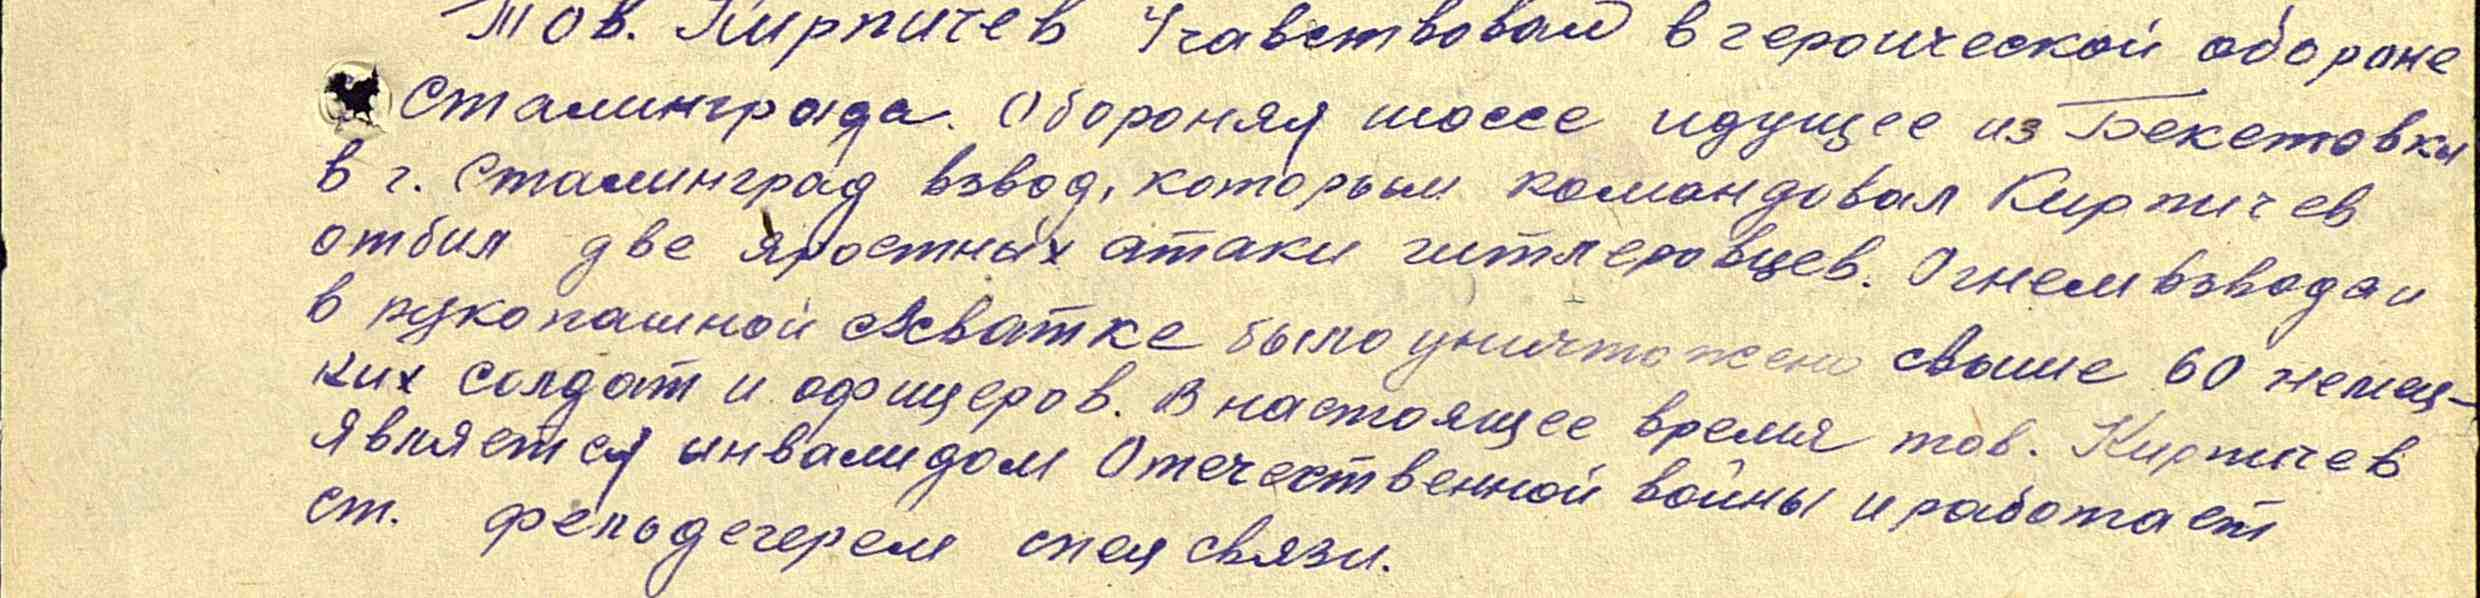 Тов. Кирпичев Учавствовал в героической обороне
Сталинграда. Обороняя шоссе идущее из Бекетовки
в г. Сталинград взвод, которым командовал Кирпичев
отбил две яростных атаки гитлеровцев. Огнем взвода и
в рукопашной схватке было уничтожено свыше 60 немец-
ких солдат и офицеров. В настоящее время тов. Кирпичев
является инвалидом Отечественной войны и работает
ст. фельдегерем спец связи.